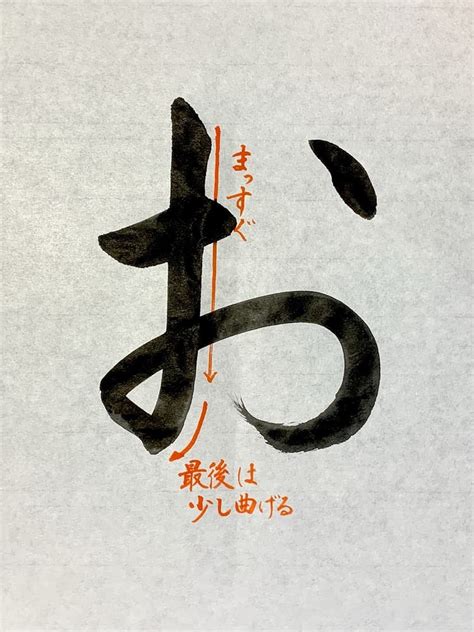 お
まっすぐ
最後は
少し曲げる